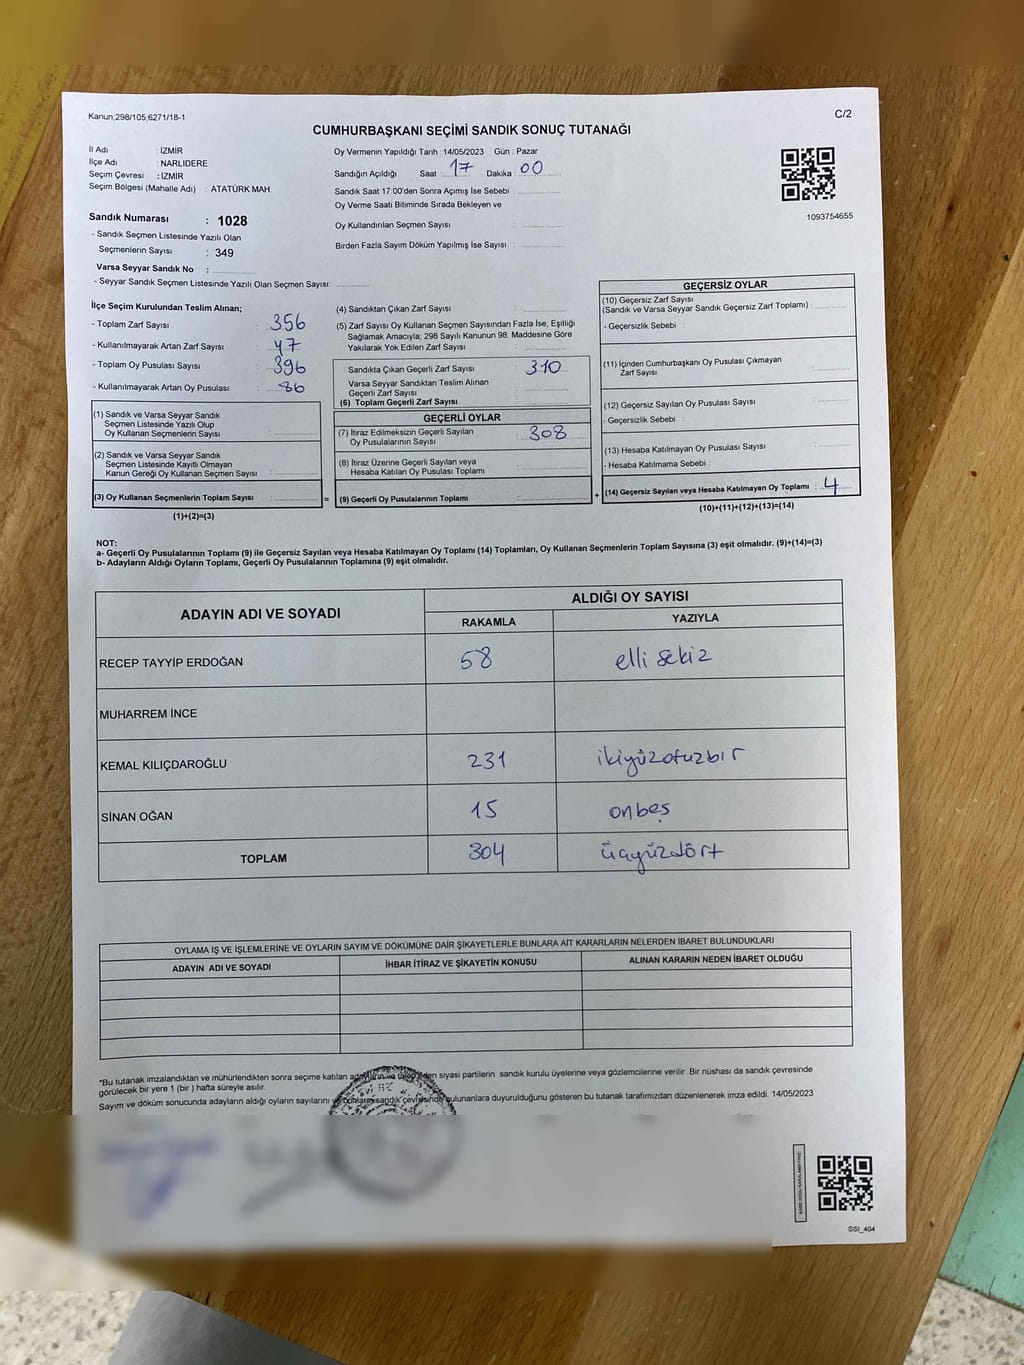 Kanun;298/105,6271/18-1
C/2
CUMHURBAŞKANI SEÇİMİ SANDIK SONUÇ TUTANAĞI
İl Adı : İZMİR
İlçe Adı : NARLIDERE
Seçim Çevresi : İZMİR
Seçim Bölgesi (Mahalle Adı) : ATATÜRK MAH.
Oy Vermenin Yapıldığı Tarih : 14/05/2023 Gün : Pazar
Sandığın Açıldığı Saat : 17 Dakika : 00
Sandık Saat 17:00'den Sonra Açımış İse Sebebi :
Oy Verme Saati Bitiminde Sırada Bekleyen ve
Oy Kullandırılan Seçmen Sayısı :
Birden Fazla Sayım Döküm Yapılmış İse Sayısı :
1093754655
Sandık Numarası : 1028
- Sandık Seçmen Listesinde Yazılı Olan
Seçmenlerin Sayısı : 349
Varsa Seyyar Sandık No :
- Seyyar Sandık Seçmen Listesinde Yazılı Olan Seçmen Sayısı:
İlçe Seçim Kurulundan Teslim Alınan;
- Toplam Zarf Sayısı : 356
- Kullanılmayarak Artan Zarf Sayısı : 47
- Toplam Oy Pusulası Sayısı : 396
- Kullanılmayarak Artan Oy Pusulası : 86
(1) Sandık ve Varsa Seyyar Sandık
Seçmen Listesinde Yazılı Olup
Oy Kullanan Seçmenlerin Sayısı :
(2) Sandık ve Varsa Seyyar Sandık
Seçmen Listesinde Kayıtlı Olmayan
Kanun Gereği Oy Kullanan Seçmen Sayısı :
(3) Oy Kullanan Seçmenlerin Toplam Sayısı :
(1)+(2)=(3)
(4) Sandıktan Çıkan Zarf Sayısı :
(5) Zarf Sayısı Oy Kullanan Seçmen Sayısından Fazla İse, Eşitliği
Sağlamak Amacıyla; 298 Sayılı Kanunun 98. Maddesine Göre
Yakılarak Yok Edilen Zarf Sayısı :
Sandıkta Çıkan Geçerli Zarf Sayısı : 310
Varsa Seyyar Sandıktan Teslim Alınan
Geçerli Zarf Sayısı :
(6) Toplam Geçerli Zarf Sayısı :
GEÇERLİ OYLAR
(7) İtiraz Edilmeksizin Geçerli Sayılan
Oy Pusulalarının Sayısı : 308
(8) İtiraz Üzerine Geçerli Sayılan veya
Hesaba Katılan Oy Pusulası Toplamı :
= (9) Geçerli Oy Pusulalarının Toplamı :
GEÇERSİZ OYLAR
(10) Geçersiz Zarf Sayısı
(Sandık ve Varsa Seyyar Sandık Geçersiz Zarf Toplamı) :
- Geçersizlik Sebebi :
(11) İçinden Cumhurbaşkanı Oy Pusulası Çıkmayan
Zarf Sayısı :
(12) Geçersiz Sayılan Oy Pusulası Sayısı :
- Geçersizlik Sebebi :
(13) Hesaba Katılmayan Oy Pusulası Sayısı :
- Hesaba Katılmama Sebebi :
+ (14) Geçersiz Sayılan veya Hesaba Katılmayan Oy Toplamı : 4
(10)+(11)+(12)+(13)=(14)
NOT:
a- Geçerli Oy Pusulalarının Toplamı (9) ile Geçersiz Sayılan veya Hesaba Katılmayan Oy Toplamı (14) Toplamları, Oy Kullanan Seçmenlerin Toplam Sayısına (3) eşit olmalıdır. (9)+(14)=(3)
b- Adayların Aldığı Oyların Toplamı, Geçerli Oy Pusulalarının Toplamına (9) eşit olmalıdır.
ADAYIN ADI VE SOYADI
ALDIĞI OY SAYISI
RAKAMLA YAZIYLA
RECEP TAYYİP ERDOĞAN 58 elli sekiz
MUHARREM İNCE
KEMAL KILIÇDAROĞLU 231 ikiyüzotuzbir
SİNAN OĞAN 15 onbeş
TOPLAM 304 üçyüzdört
OYLAMA İŞ VE İŞLEMLERİNE VE OYLARIN SAYIM VE DÖKÜMÜNE DAİR ŞİKAYETLERLE BUNLARA AİT KARARLARIN NELERDEN İBARET BULUNDUKLARI
ADAYIN ADI VE SOYADI İHBAR İTİRAZ VE ŞİKAYETİN KONUSU ALINAN KARARIN NEDEN İBARET OLDUĞU
*Bu tutanak imzalandıktan ve mühürlendikten sonra seçime katılan siyasi partilerin sandık kurulu üyelerine veya gözlemcilerine verilir. Bir nüshası da sandık çevresinde
görülecek bir yere 1 (bir ) hafta süreyle asılır.
Sayım ve döküm sonucunda adayların aldığı oyların sayılarını sandık çevresinde bulunanlara duyurulduğunu gösteren bu tutanak tarafımızdan düzenlenerek imza edildi. 14/05/2023
SSI_404